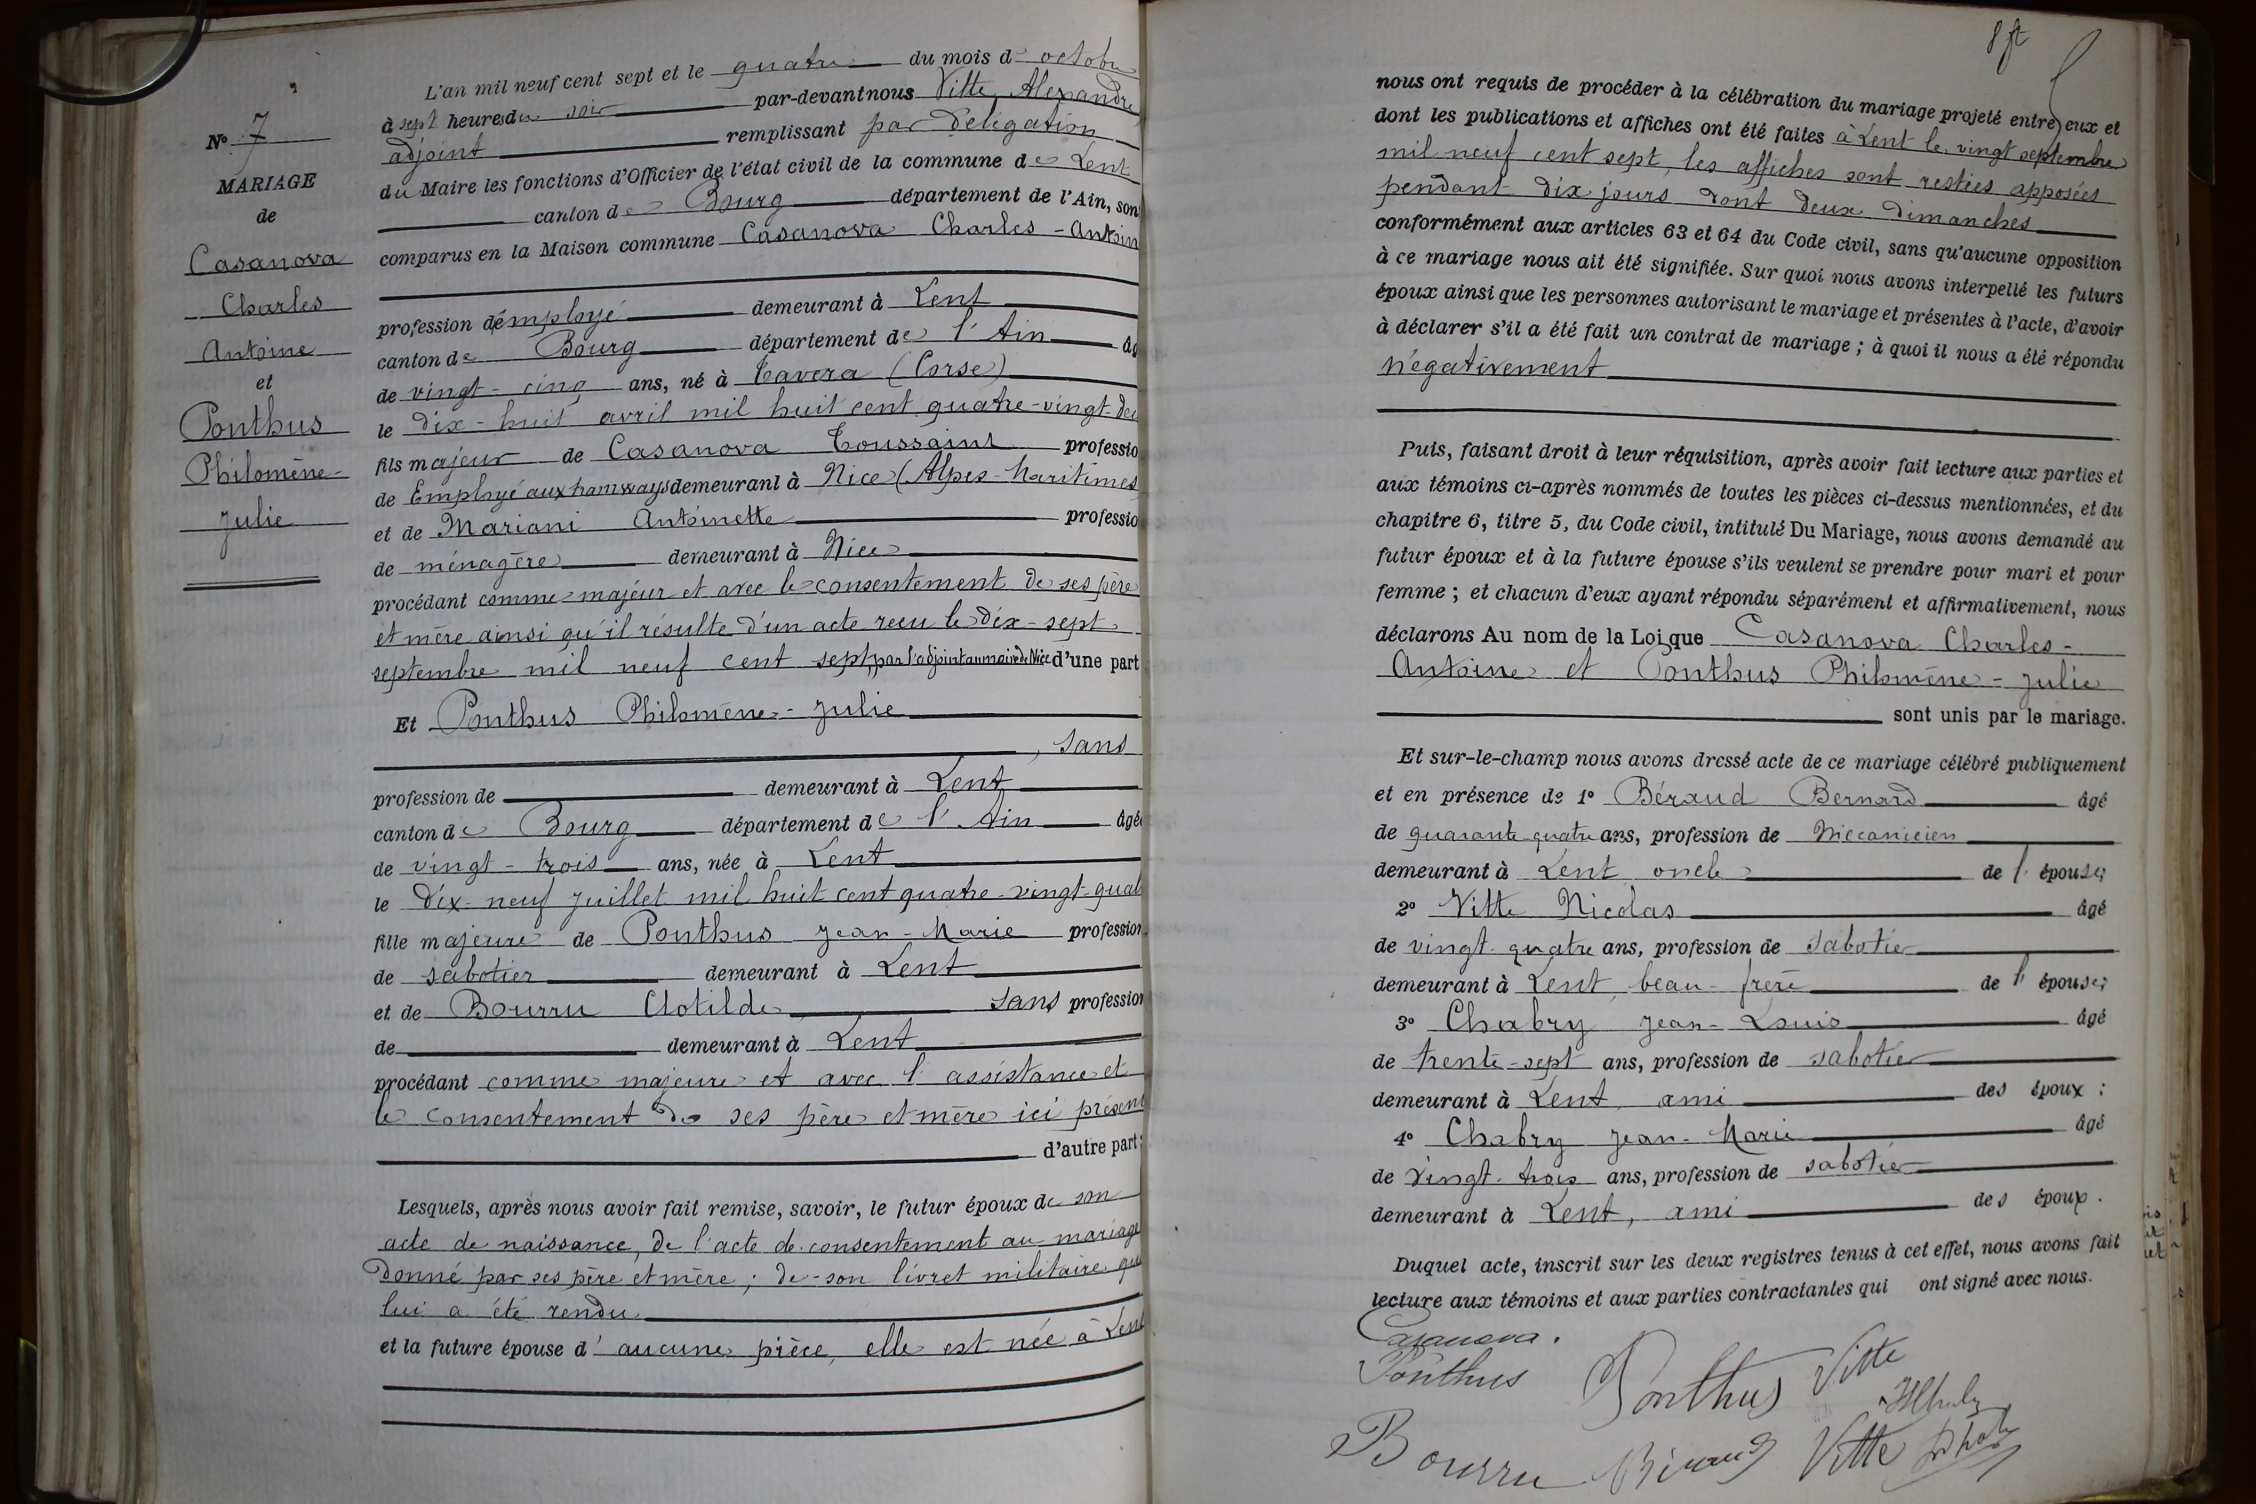 L'an mil neuf cent sept et le quatre du mois de octobre
à sept heures du soir par-devant nous Vitte Alexandre
adjoint remplissant par délégation
du Maire les fonctions d'Officier de l'état civil de la commune de Lent
canton de Bourg département de l'Ain, son
comparus en la Maison commune Casanova Charles - Antoin
profession d'employé demeurant à Lent
canton de Bourg département de l'Ain âg
de vingt-cinq ans, né à Tavera (Corse)
le dix-huit avril mil huit cent quatre-vingt-deu
fils majeur de Casanova Toussaint professio
de Employé aux tramways demeurant à Nice (Alpes-Maritimes
et de Mariani Antoinette professio
de ménagère demeurant à Nice
procédant comme majeur et avec le consentement de ses père
et mère ainsi qu'il résulte d'un acte reçu le dix-sept
septembre mil neuf cent sept, par l'adjoint au maire de Nice d'une part
Et Ponthus Philomène-Julie
, sans
profession de demeurant à Lent
canton de Bourg département de l'Ain âgé
de vingt-trois ans, née à Lent
le dix-neuf juillet mil huit cent quatre-vingt-quat
fille majeure de Ponthus Jean-Marie profession
de sabotier demeurant à Lent
et de Bourru Clotilde, sans profession
de demeurant à Lent
procédant comme majeure et avec l'assistance et
le consentement de ses père et mère ici présent
d'autre part;
Lesquels, après nous avoir fait remise, savoir, le futur époux de son
acte de naissance, de l'acte de consentement au mariage
donné par ses père et mère; de son livret militaire qui
lui a été rendu
et la future épouse d'aucune pièce, elle est née à Lent
N° 7
MARIAGE
de
Casanova
Charles
Antoine
et
Ponthus
Philomène-
Julie
8 ft
nous ont requis de procéder à la célébration du mariage projeté entre eux et
dont les publications et affiches ont été faites à Lent le vingt septembre
mil neuf cent sept, les affiches sont restées apposées
pendant dix jours dont deux dimanches
conformément aux articles 63 et 64 du Code civil, sans qu'aucune opposition
à ce mariage nous ait été signifiée. Sur quoi nous avons interpellé les futurs
époux ainsi que les personnes autorisant le mariage et présentes à l'acte, d'avoir
à déclarer s'il a été fait un contrat de mariage; à quoi il nous a été répondu
négativement
Puis, faisant droit à leur réquisition, après avoir fait lecture aux parties et
aux témoins ci-après nommés de toutes les pièces ci-dessus mentionnées, et du
chapitre 6, titre 5, du Code civil, intitulé Du Mariage, nous avons demandé au
futur époux et à la future épouse s'ils veulent se prendre pour mari et pour
femme; et chacun d'eux ayant répondu séparément et affirmativement, nous
déclarons Au nom de la Loi que Casanova Charles-
Antoine et Ponthus Philomène-Julie
sont unis par le mariage.
Et sur-le-champ nous avons dressé acte de ce mariage célébré publiquement
et en présence de 1° Béraud Bernard âgé
de quarante-quatre ans, profession de Mécanicien
demeurant à Lent oncle de l'épouse;
2° Vitte Nicolas âgé
de vingt-quatre ans, profession de sabotier
demeurant à Lent, beau-frère de l'épouse;
3° Chabry Jean-Louis âgé
de trente-sept ans, profession de sabotier
demeurant à Lent, ami des époux;
4° Chabry Jean-Marie âgé
de vingt-trois ans, profession de sabotier
demeurant à Lent, ami des époux.
Duquel acte, inscrit sur les deux registres tenus à cet effet, nous avons fait
lecture aux témoins et aux parties contractantes qui ont signé avec nous.
Casanova.
Ponthus Ponthus Vitte
Bourru Béraud Vitte